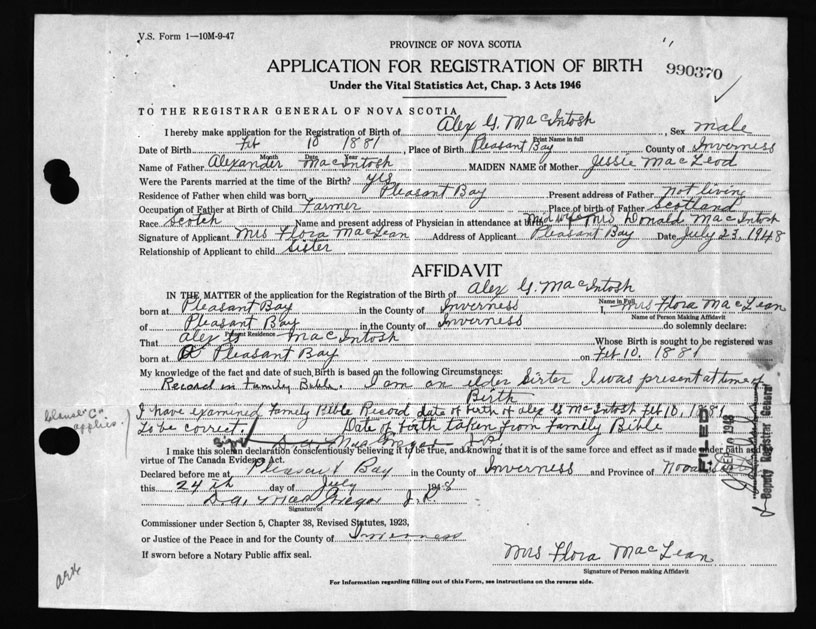 V.S. Form 1—10M-9-47
PROVINCE OF NOVA SCOTIA
APPLICATION FOR REGISTRATION OF BIRTH 990370
Under the Vital Statistics Act, Chap. 3 Acts 1946
TO THE REGISTRAR GENERAL OF NOVA SCOTIA
I hereby make application for the Registration of Birth of Alex G. MacIntosh, Sex male
Print Name in full
Date of Birth Feb 10 1881, Place of Birth Pleasant Bay County of Inverness
Month Date Year
Name of Father Alexander MacIntosh MAIDEN NAME of Mother Jessie MacLeod
Were the Parents married at the time of the Birth? yes
Residence of Father when child was born Pleasant Bay Present address of Father Not living
Occupation of Father at Birth of Child Farmer Place of birth of Father Scotland
Race Scotch Name and present address of Physician in attendance at birth Midwife Mrs Donald MacIntosh
Signature of Applicant Mrs Flora MacLean Address of Applicant Pleasant Bay Date July 23, 1948
Relationship of Applicant to child Sister
AFFIDAVIT
IN THE MATTER of the application for the Registration of the Birth of Alex G. MacIntosh
born at Pleasant Bay in the County of Inverness I, Mrs Flora MacLean
Name in Full
Name of Person Making Affidavit
of Pleasant Bay in the County of Inverness do solemnly declare:
Present Residence
That Alex G MacIntosh Whose Birth is sought to be registered was
born at Pleasant Bay on Feb 10, 1881
My knowledge of the fact and date of such Birth is based on the following Circumstances:
Record in Family Bible. I am an elder Sister I was present at time of
Birth
I have examined Family Bible Record date of birth of Alex G McIntosh Feb 10, 1881
to be correct. Date of birth taken from Family Bible
clause "C" applies.
I make this solemn declaration conscientiously believing it to be true, and knowing that it is of the same force and effect as if made under oath and
virtue of The Canada Evidence Act.
Declared before me at Pleasant Bay in the County of Inverness and Province of Nova Scotia
this 24th day of July 1948
D.A. MacGregor J.P.
Signature of
Commissioner under Section 5, Chapter 38, Revised Statutes, 1923,
or Justice of the Peace in and for the County of Inverness
If sworn before a Notary Public affix seal.
Mrs Flora MacLean
Signature of Person making Affidavit
For Information regarding filling out of this Form, see instructions on the reverse side.
FILED
1948
Deputy Registrar General